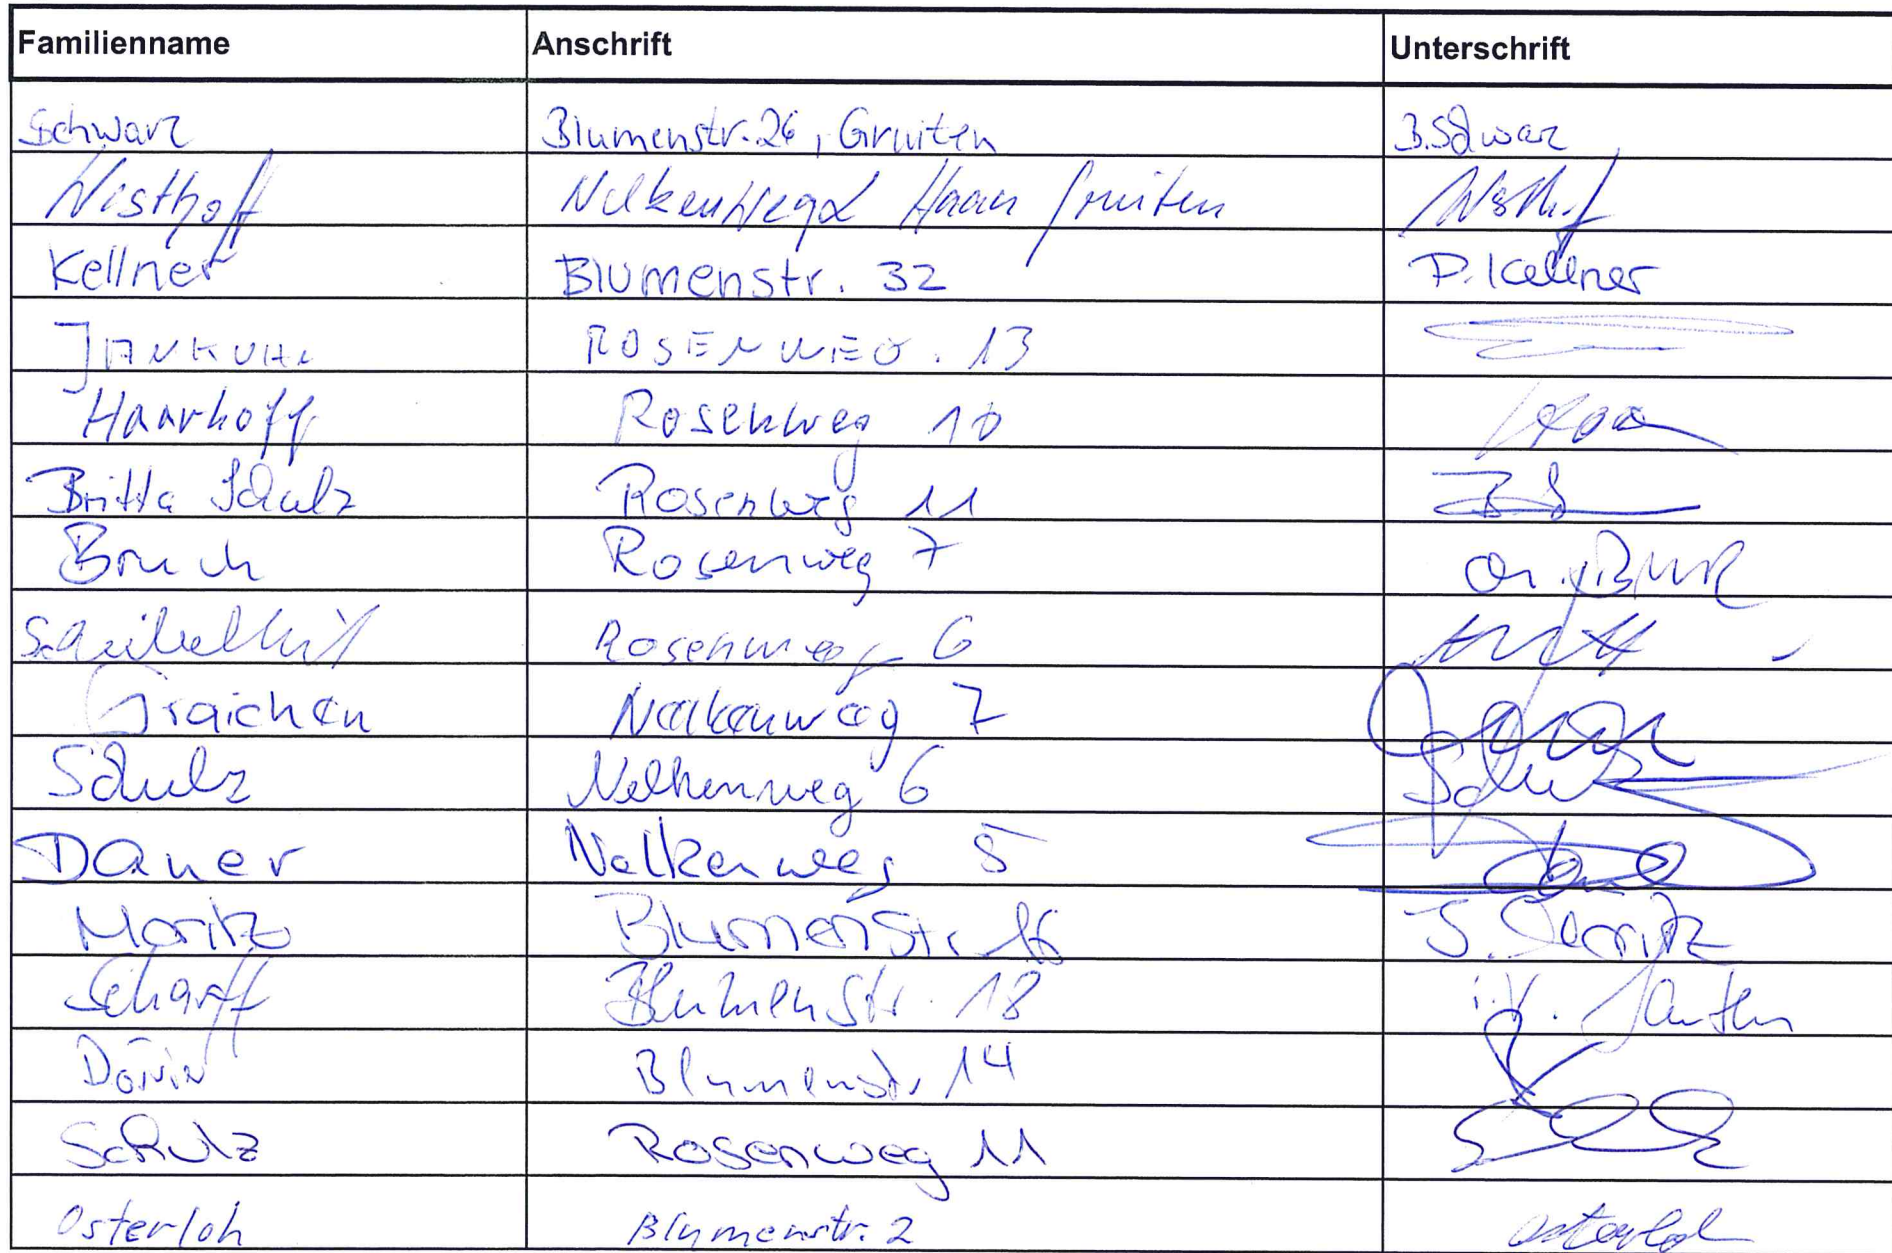 Familienname Anschrift Unterschrift
Schwarz Blumenstr. 26, Gruiten B. Schwarz
Westhoff Nelkenweg 2 Haan Gruiten
Kellner Blumenstr. 32 P. Kellner
JANKUHN ROSENWEG. 13
Haarhoff Rosenweg 10
Britta Schulz Rosenweg 11 B S
Bruch Rosenweg 7
Rosenweg 6
Graichen Nelkenweg 7
Schulz Nelkenweg 6 Schulz
Dauer Nelkenweg 5
Moritz Blumenstr. 16 J. Moritz
Scharff Blumenstr. 18 i.V.
Blumenstr. 14
Schulz Rosenweg 11
Osterloh Blumenstr. 2 Osterloh